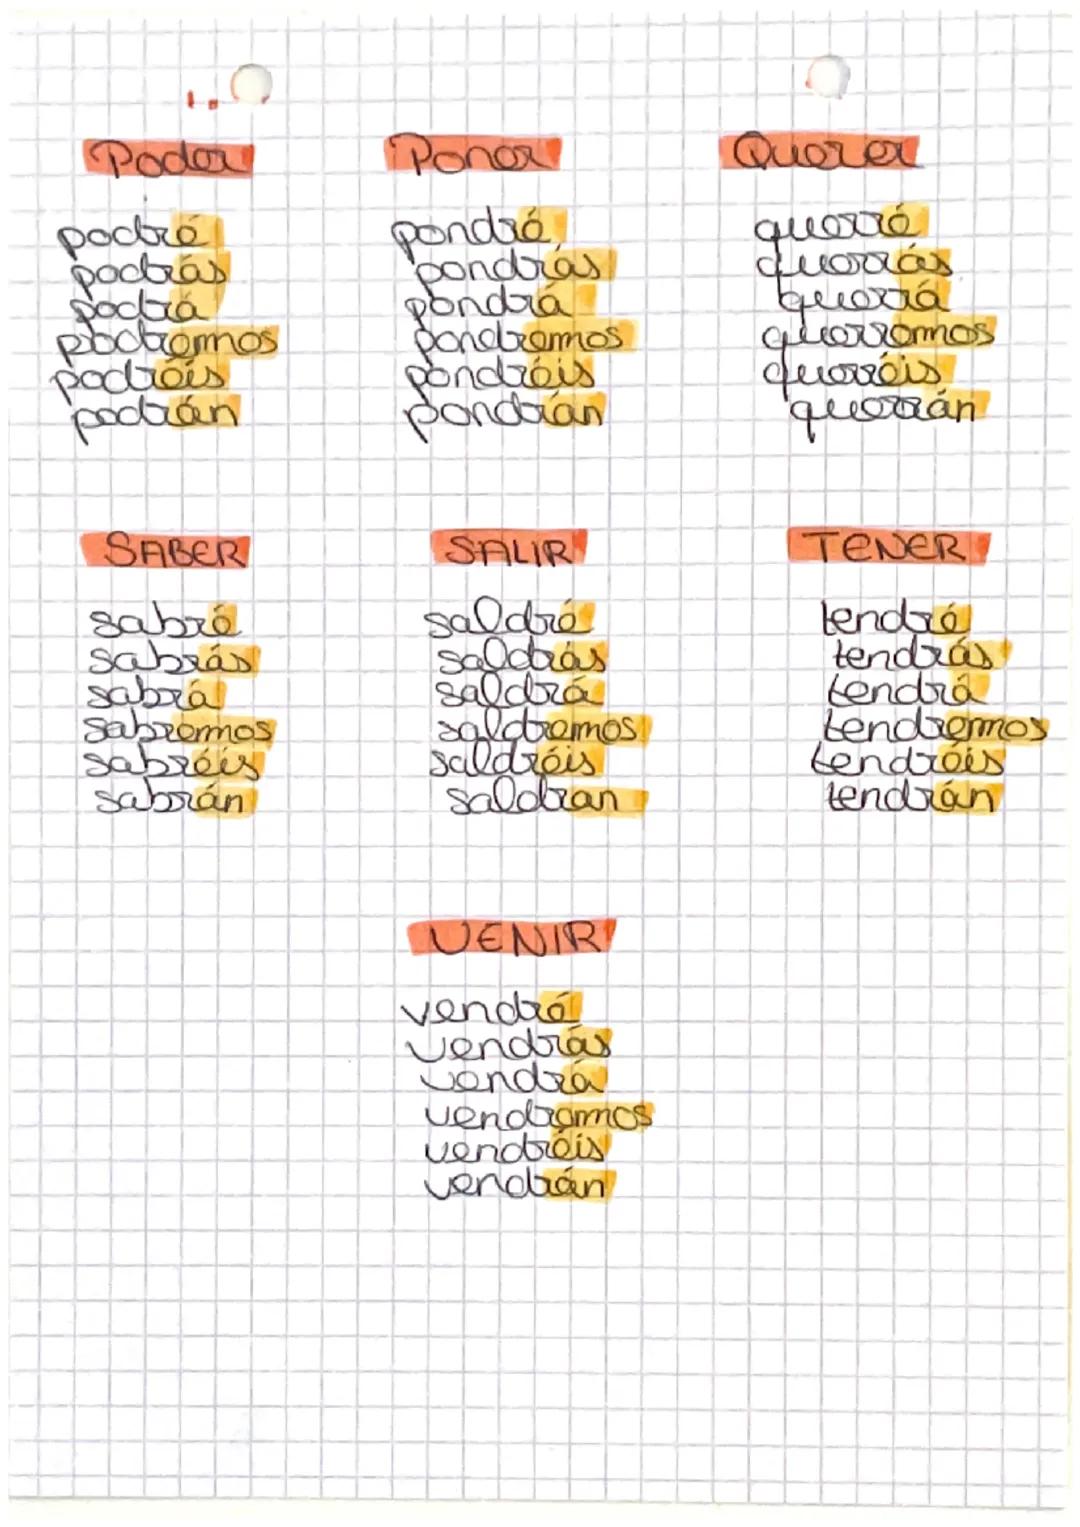 1.
Poder
podré
podrás
podrá
podremos
podréis
podrán
Poner
pondré
pondrás
pondrá
pondremos
pondréis
pondrán
Querer
querré
querrás
querrá
querremos
querréis
querrán
SABER
sabré
sabrás
sabrá
sabremos
sabréis
sabrán
SALIR
saldré
saldrás
saldrá
saldremos
saldréis
saldran
TENER
tendré
tendrás
tendrá
tendremos
tendréis
tendrán
VENIR
vendré
vendrás
vendrá
vendremos
vendréis
vendrán